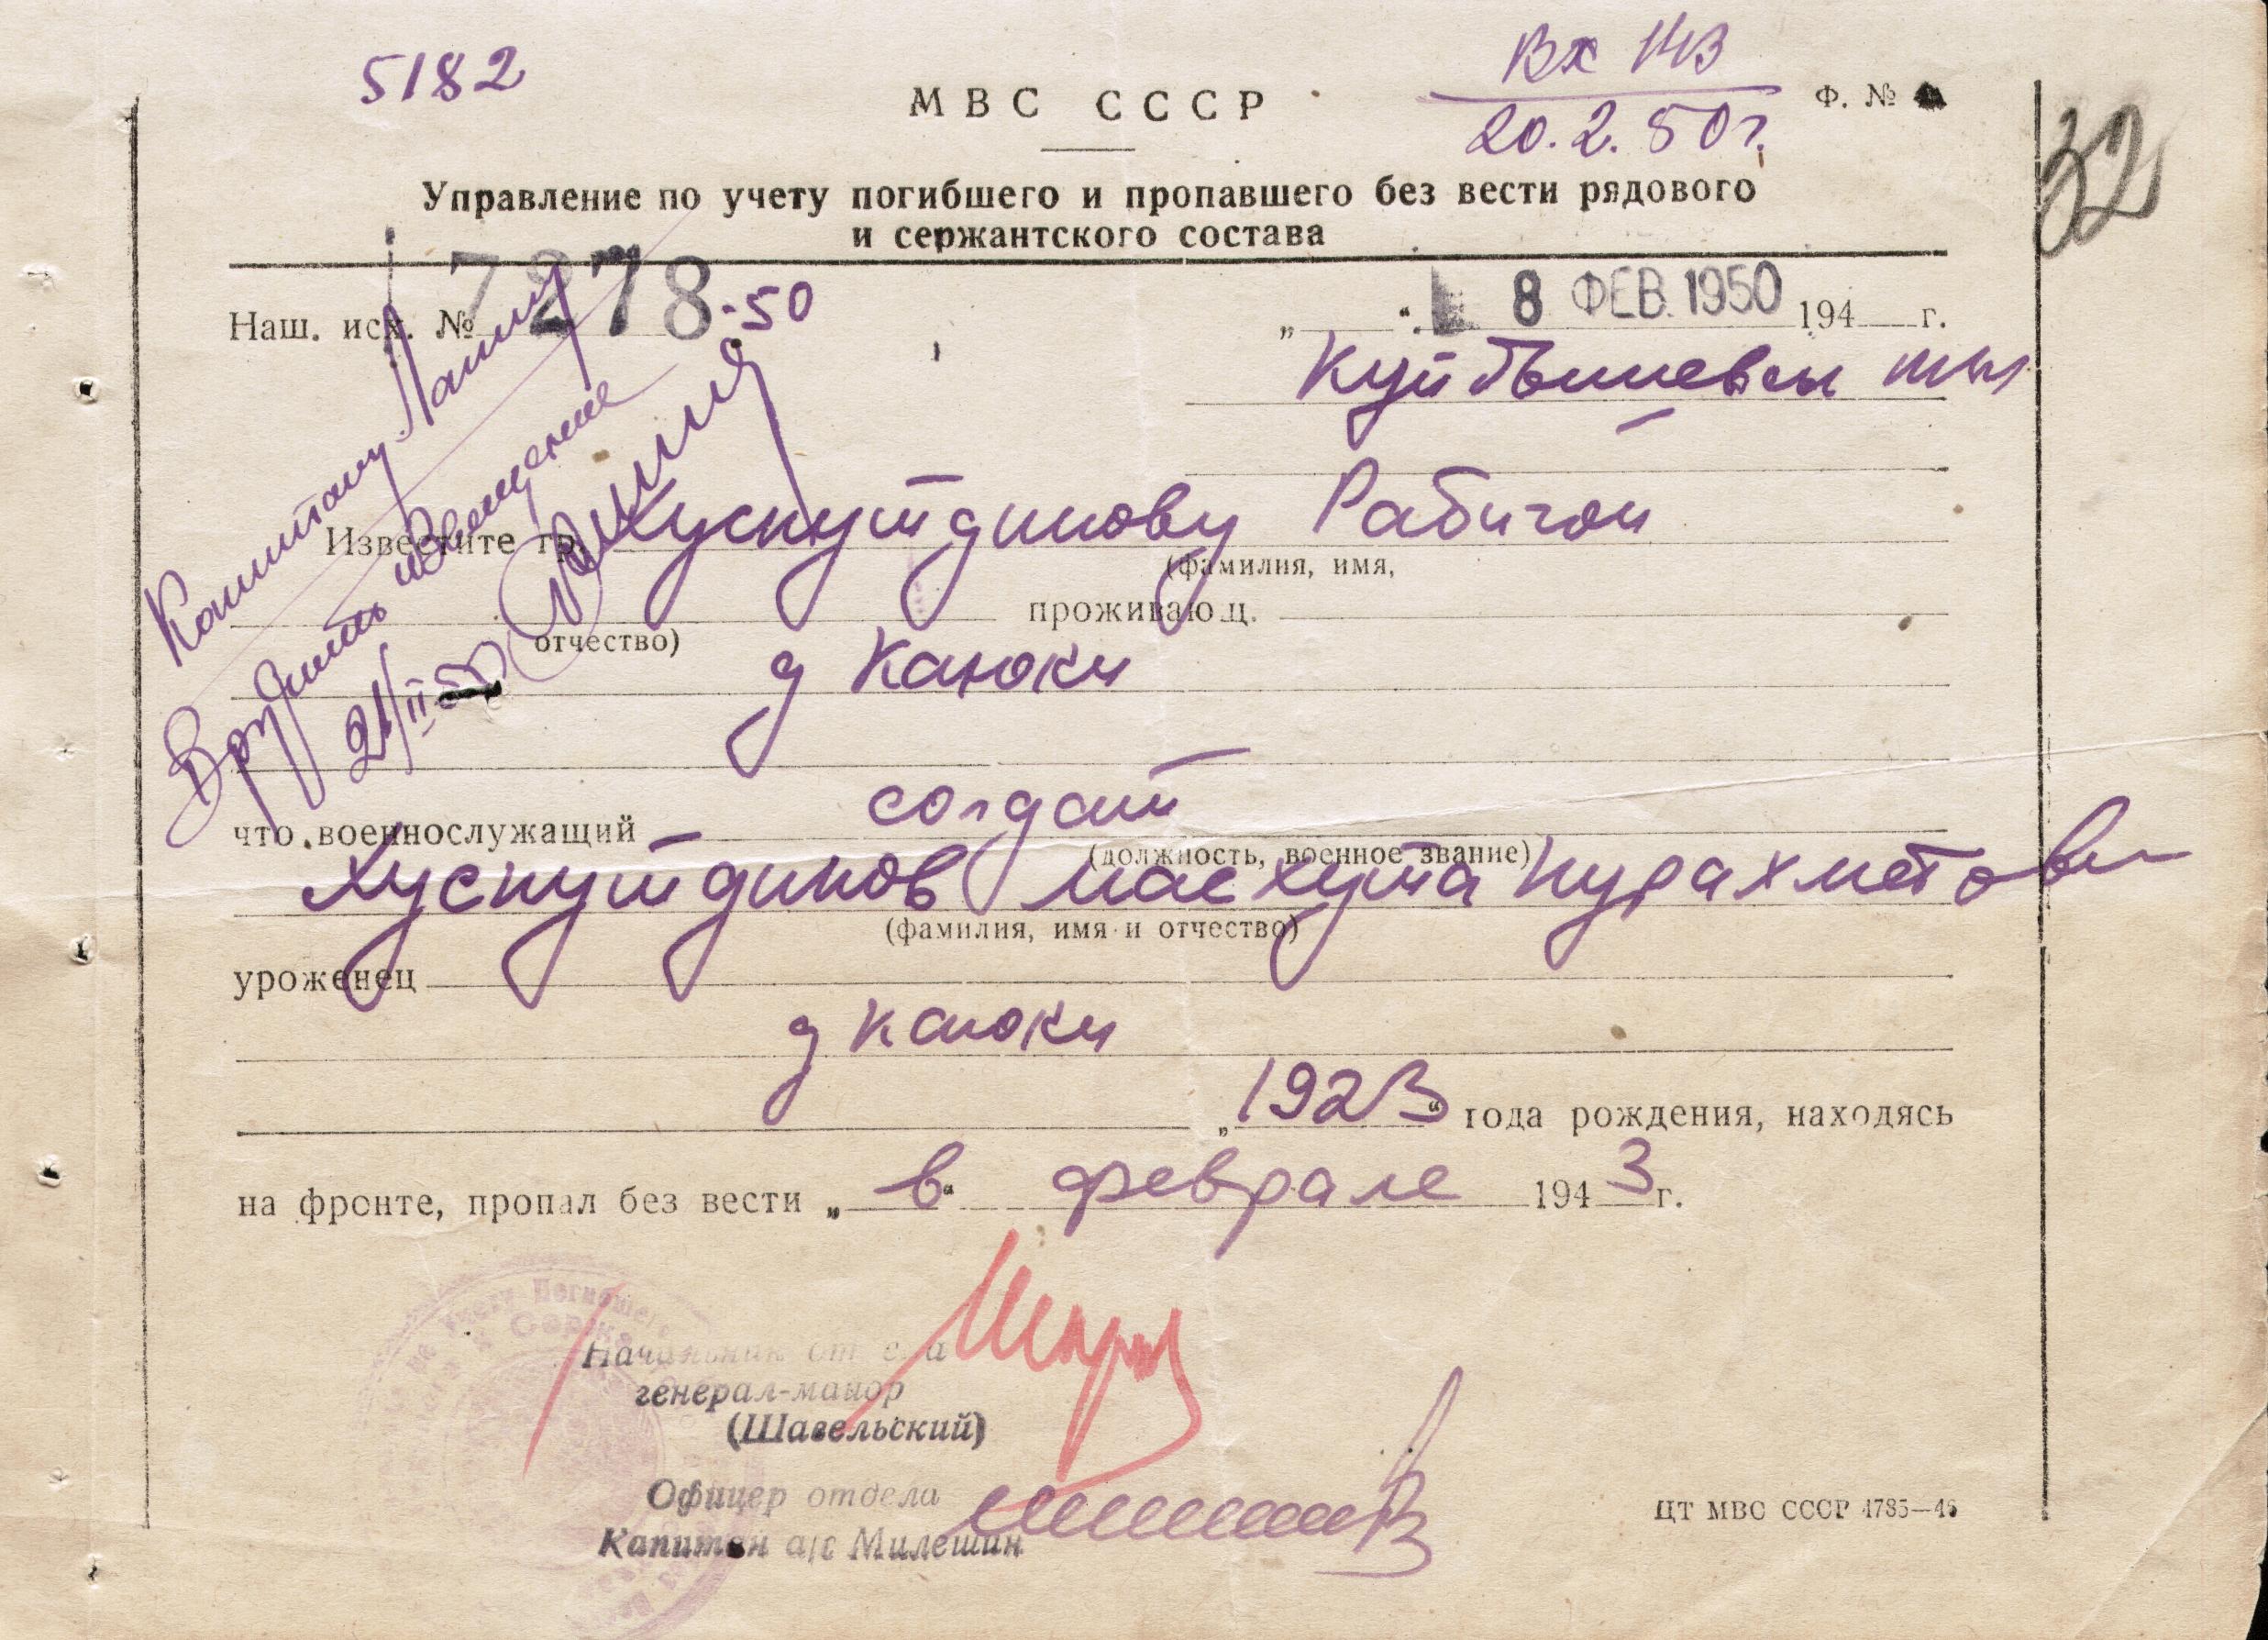 5182
Вх 143
20.2.50 г.
МВС СССР
Ф. №
32
Управление по учету погибшего и пропавшего без вести рядового
и сержантского состава
Наш. исх. № 7278-50
„ “ 8 ФЕВ. 1950 194 г.
Капитану
Вручить извещение
21/II-50
Известите гр. Хуснутдинову
(фамилия, имя,
отчество) проживающ.
д Каюки
что военнослужащий солдат
(должность, военное звание)
Хуснутдинов Масхута Нурахметов
(фамилия, имя и отчество)
уроженец
д Каюки
„1923“ года рождения, находясь
на фронте, пропал без вести „в“ феврале 1943 г.
Начальник отдела
генерал-майор
(Шавельский)
Офицер отдела
Капитан а/с Милешин
ЦТ МВС СССР